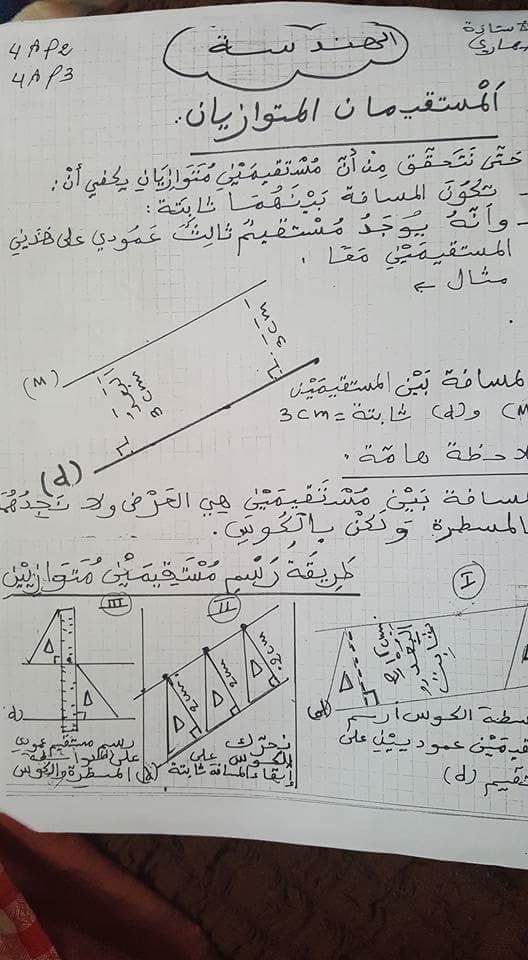 4AP2
4AP3
الهندسة
المستقيمان المتوازيان.
حَتَّى نَتَحَقَّقَ مِنْ أَنَّ مُسْتَقِيمَيْنِ مُتَوَازِيَانِ يكفي أَنْ:
- تَكُونَ المسافة بَيْنَهُمَا ثابتة:
- وأَنَّهُ يُوجَدُ مُسْتَقِيمٌ ثَالِثٌ عَمُودي على هَذَيْنِ
المستقيمَيْنِ مَعًا.
مثال
(M)
3cm
3cm
(d)
لمسافة بَيْنَ المستقيمَيْن
(M) و(d) ثابتة = 3cm
لاحظة هامّة:
مسافة بَيْنَ مُسْتَقِيمَيْنِ هِيَ العَرْضُ ولا نَجِدُهُمَا
المسطرة وَلَكِنْ بِالْكُوسِ.
طَرِيقَة رَسْمِ مُسْتَقِيمَيْنِ مُتَوَازِيَيْنِ
I
(d)
سطة الكوس أرسم
قِيمَيْنِ عموديَيْنِ على
تقيم (d)
II
2cm
2cm
2cm
(d)
نُحَرِّك
الكوس على
إبقاء المسافة ثابتة
III
(d)
رسم مستقيم عمودي
المسطرة والكوس